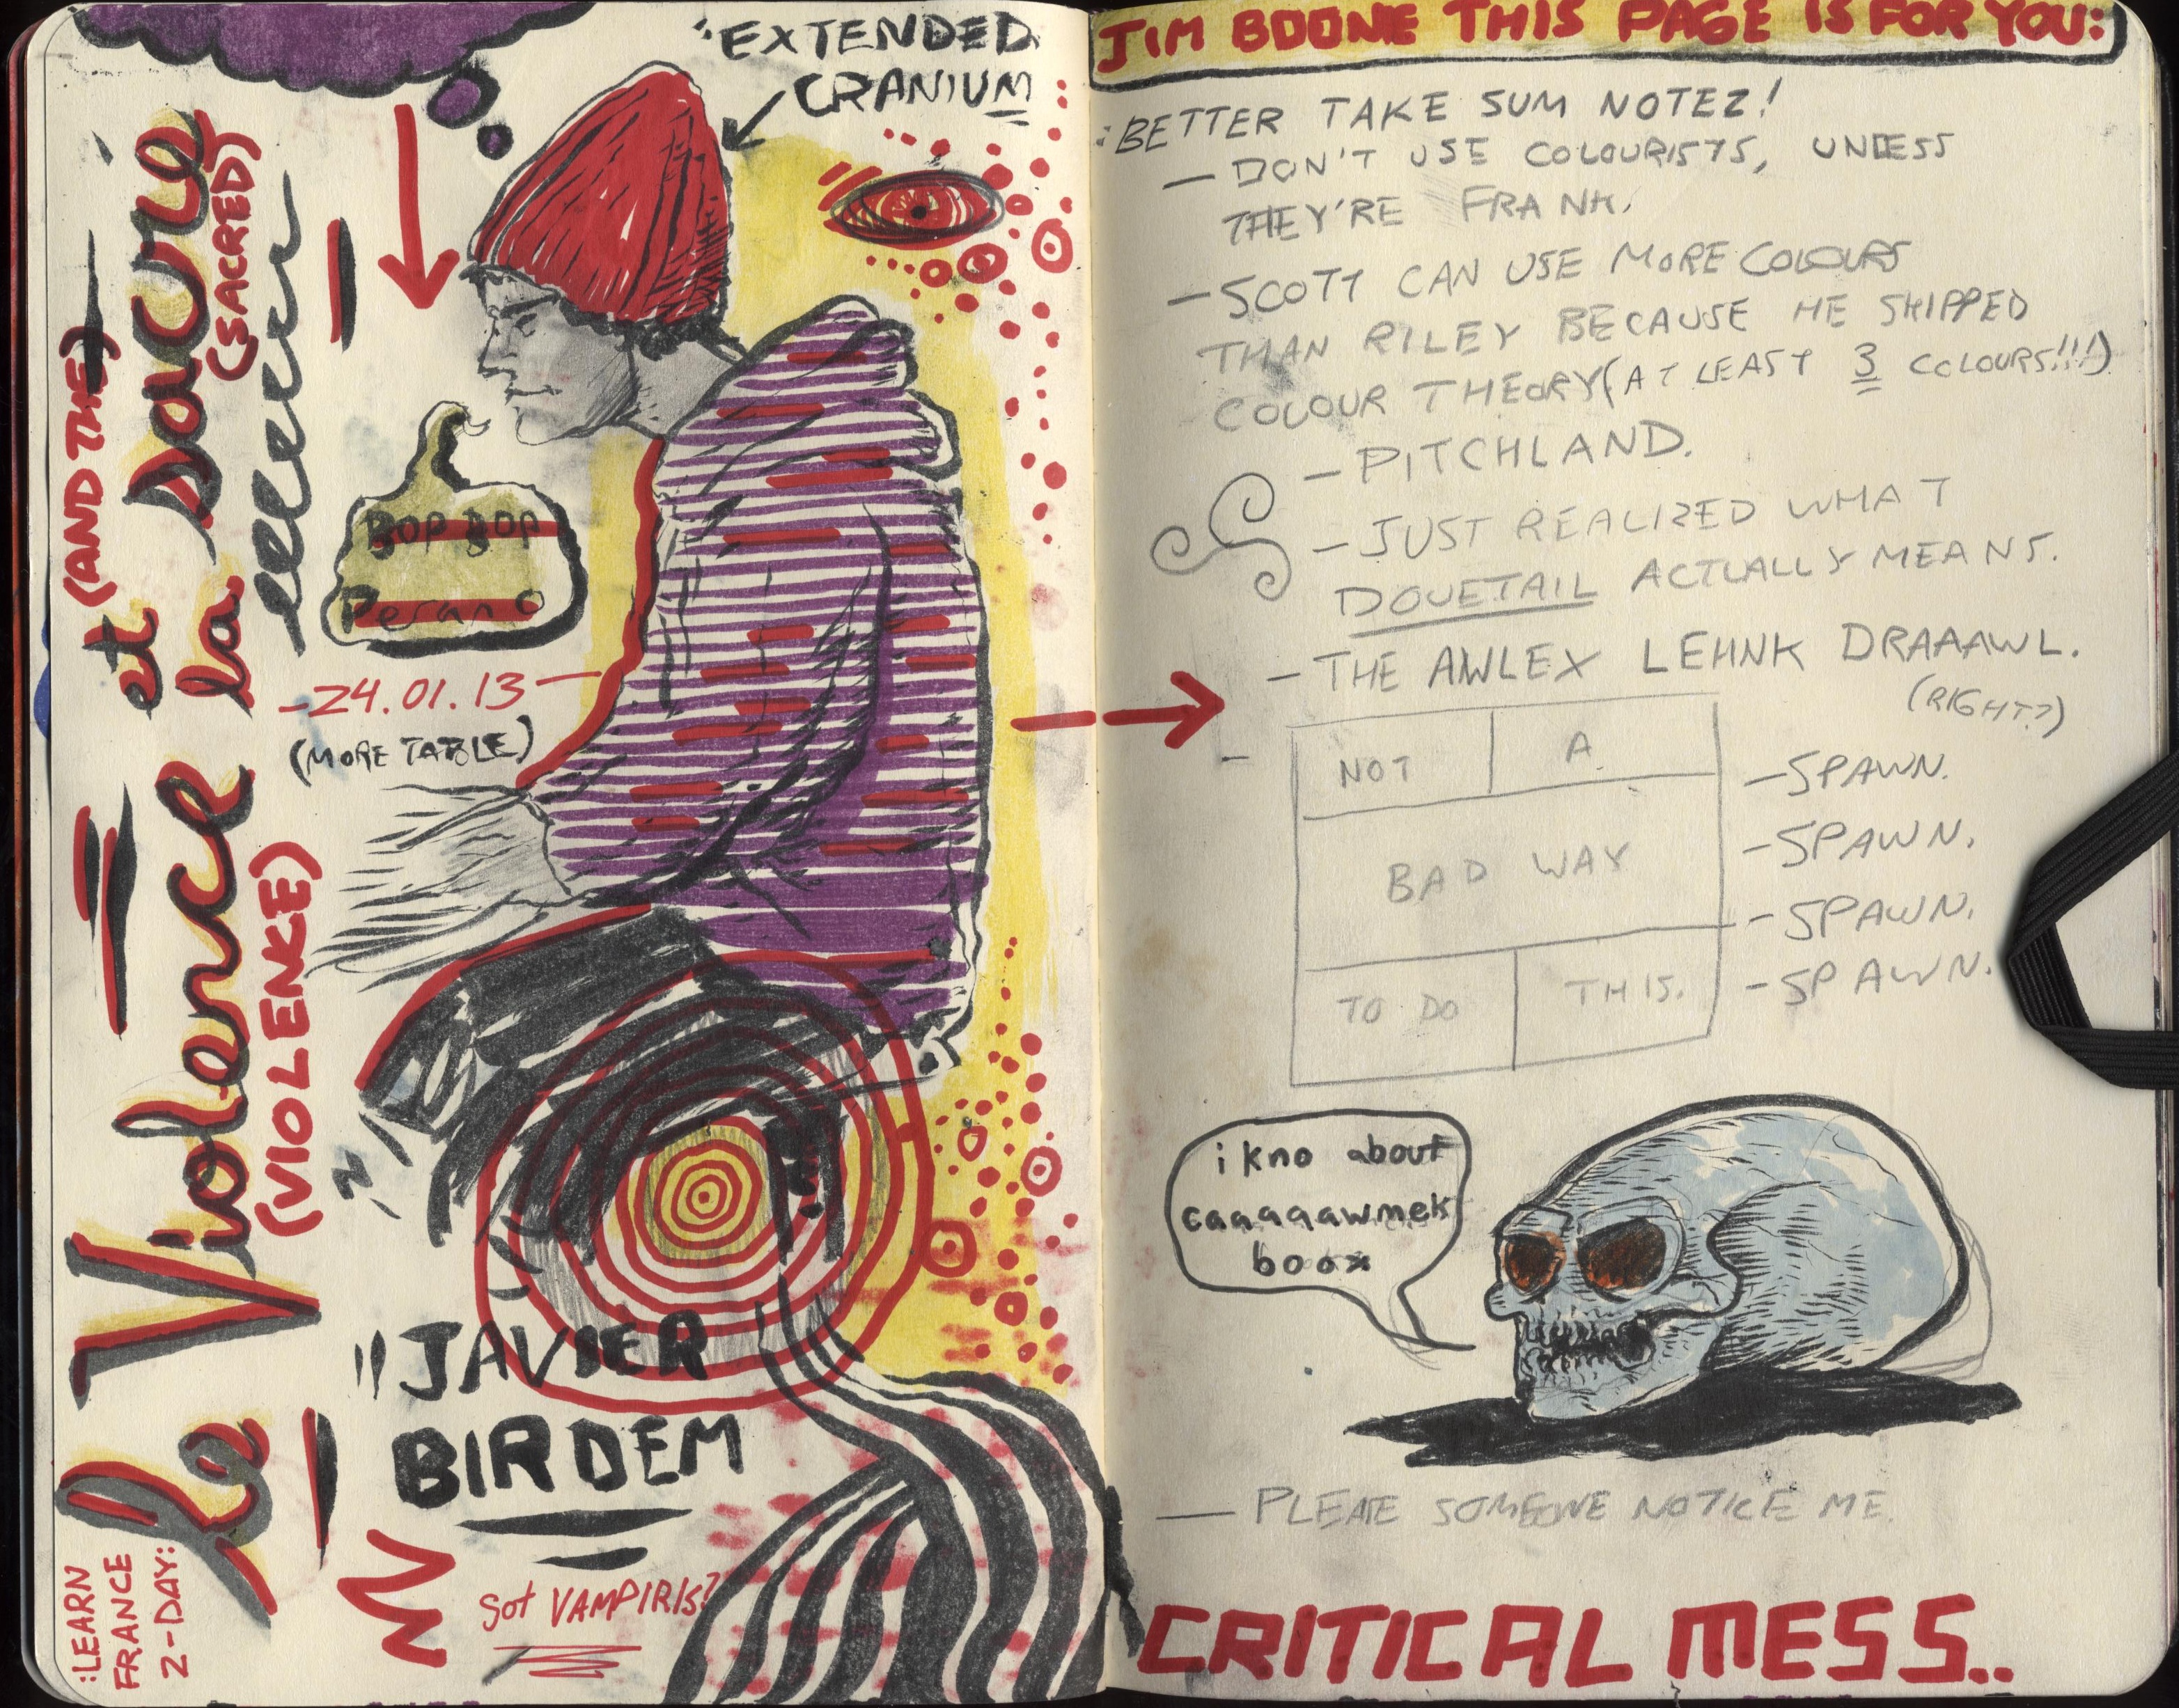 "EXTENDED
CRANIUM
La Violence et la sacré
(VIOLENCE)
(AND THE)
(SACRED)
:LEARN
FRANCE
2-DAY:
BOP BOP
Pesano
-24.01.13-
(MORE TABLE)
"JAVIER
BIRDEM
Sot VAMPIRIS?
JIM BOONE THIS PAGE IS FOR YOU:
:BETTER TAKE SUM NOTEZ!
- DON'T USE COLOURISTS, UNLESS
THEY'RE FRANK.
- SCOTT CAN USE MORE COLOURS
THAN RILEY BECAUSE HE SKIPPED
COLOUR THEORY (AT LEAST 3 COLOURS!!!)
- PITCHLAND.
- JUST REALIZED WHAT
DOVETAIL ACTUALLY MEANS.
- THE AWLEX LEHNK DRAAAWL.
(RIGHT?)
- NOT A
BAD WAY
TO DO THIS.
- SPAWN.
- SPAWN.
- SPAWN.
- SPAWN.
i kno about
caaqaawmek
boox
- PLEASE SOMEONE NOTICE ME.
CRITICAL MESS..